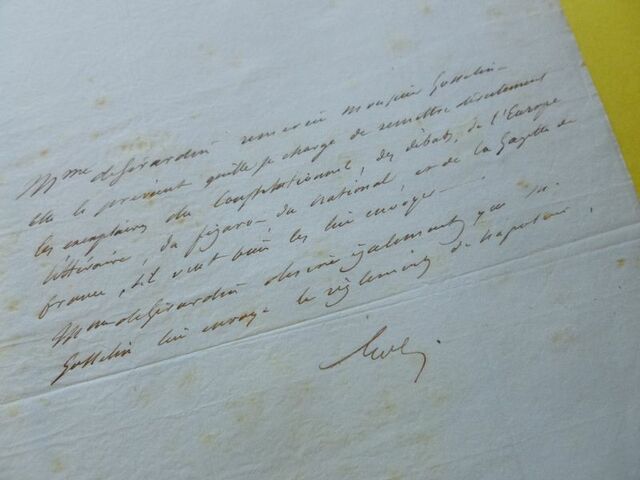 Mme de Girardin remercie Monsieur Gosselin
elle le prévient qu'elle se charge de remettre directement
les exemplaires du Constitutionnel, des débats, de l'Europe
littéraire, du figaro, du national et de la Gazette de
france, s'il veut bien les lui envoyer.
Mme de Girardin désire également que M.
Gosselin lui envoye le règlement de